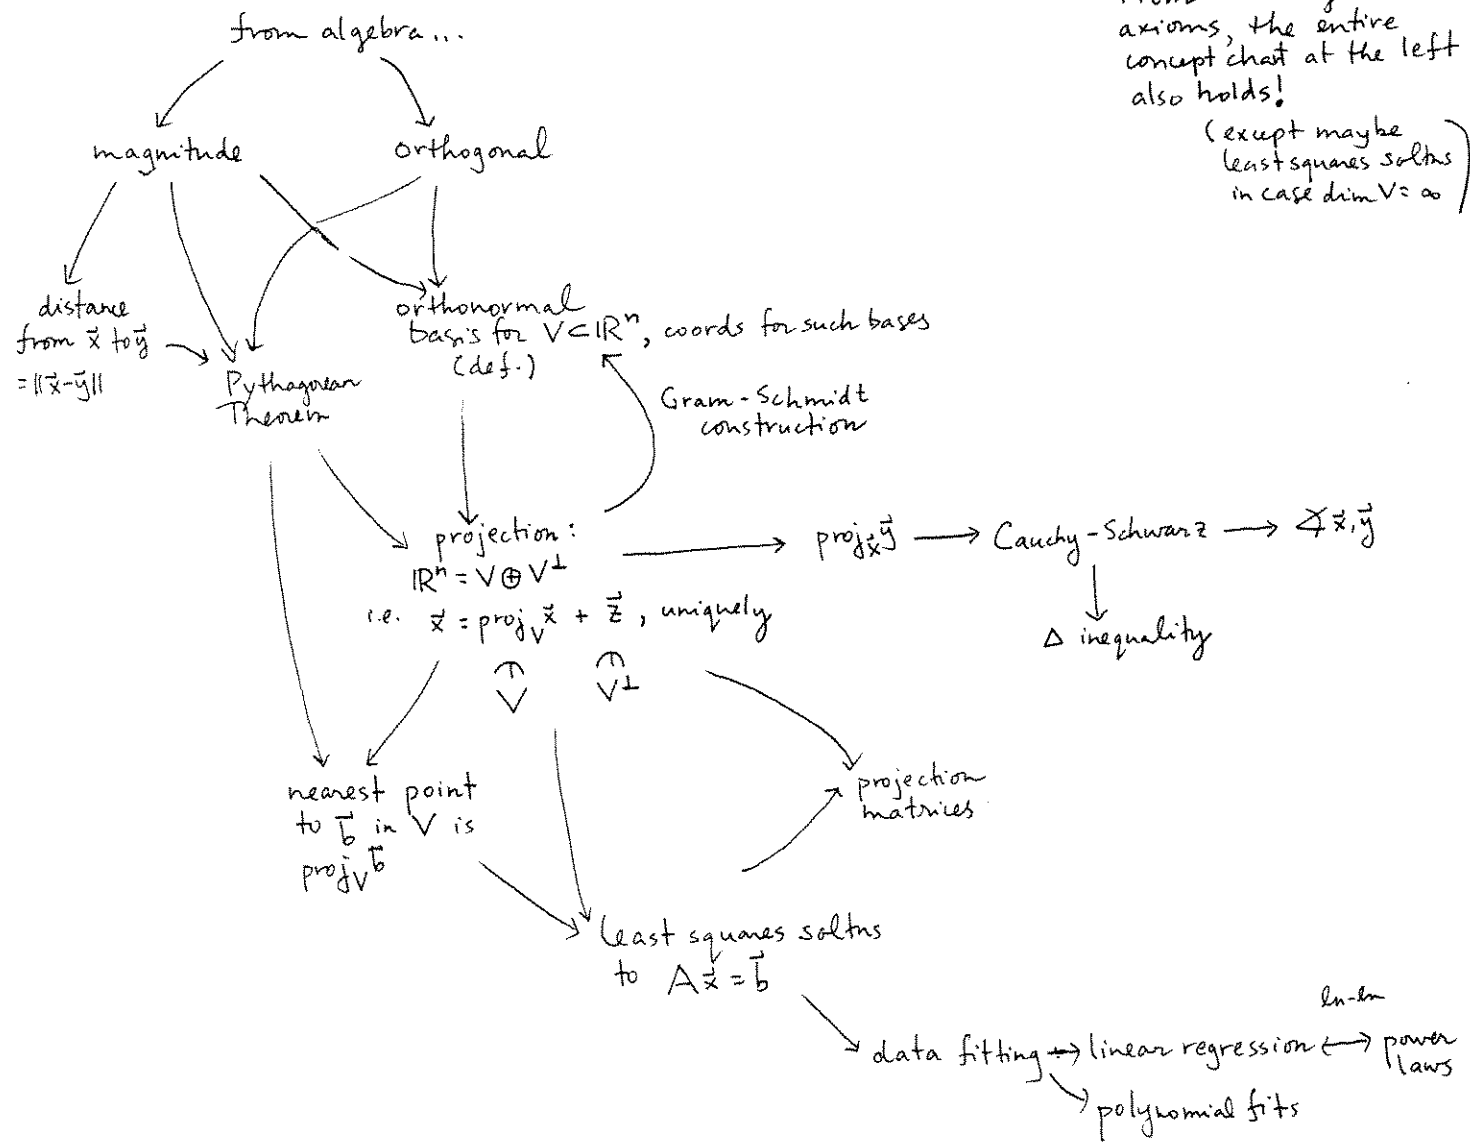 from algebra...
axioms, the entire
concept chart at the left
also holds!
(except maybe
least squares soltns
in case dim V = ∞)
magnitude
orthogonal
distance
from x⃗ to y⃗
= ||x⃗-y⃗||
Pythagorean
Theorem
orthonormal
basis for V⊂ℝⁿ, coords for such bases
(def.)
Gram-Schmidt
construction
projection:
ℝⁿ = V ⊕ V⊥
i.e. x⃗ = proj_V x⃗ + z⃗, uniquely
∩ ∩
V V⊥
proj_x⃗ y⃗ → Cauchy-Schwarz → ∡ x⃗, y⃗
Δ inequality
nearest point
to b⃗ in V is
proj_V b⃗
projection
matrices
least squares soltns
to Ax⃗ = b⃗
ln-ln
data fitting → linear regression ↔ power
laws
polynomial fits